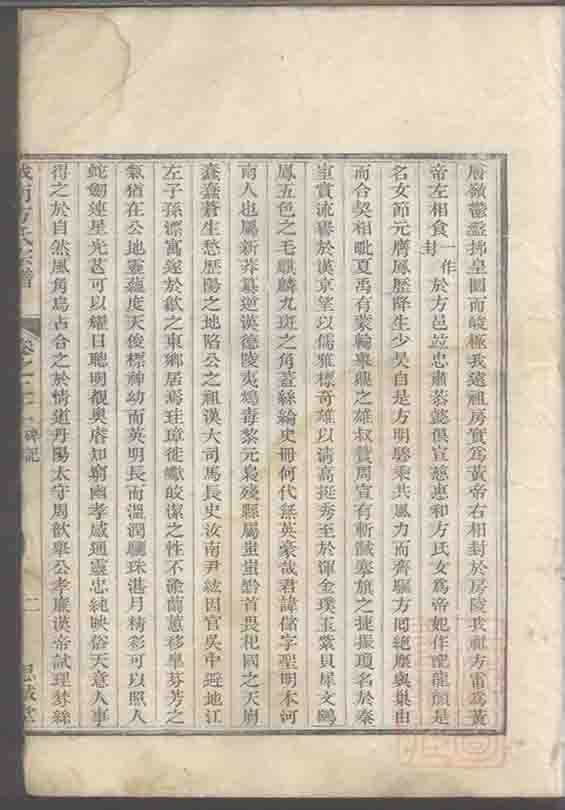 殷嶺鬱盤拂皇圖而峻極我遠祖房實為黃帝右相封於房陵我祖方雷為黃
帝左相食一作封於方邑竝忠肅恭懿俱宣慈惠和方氏女為帝妃作配龍顏是
名女節元膺鳳歷降生少昊自是方明驂乘共風力而齊驅方回絕塵與巢由
而合契相毗夏禹有蒙輪舉 之雄叔贊周宣有斬馘搴旗之捷振瓊名於秦
室貴流譽於漢京望以儒雅標奇雄以清高挺秀至於渾金璞玉紫貝犀文鷗
鳳五色之毛麒麟九斑之角蓋絲綸史冊何代無英豪哉君諱儲字聖明本河
南人也屬新莽篡逆漢德陵夷鴆毒黎元梟殘縣屬蚩蚩黔首畏杞國之天崩
蠢蠢蒼生愁歷陽之地陷公之祖漢大司馬長史汝南尹紘因官吳中避地江
左子孫漂寓遂於歙之東鄉居焉珪璋 皎潔之性不雜蘭蕙移 芬芳之
氣猶在公地靈蘊度天俊標神幼而英明長而溫潤驪珠湛月精彩可以照人
蛇劒連星光芒可以耀日聰明覩奧睿知窮幽孝感通靈忠純映俗天意人事
得之於自然風角鳥占合之於情道丹陽太守周歆舉公孝廉漢帝試理棼絲
方氏宗譜 卷之 碑記 二 思敬堂